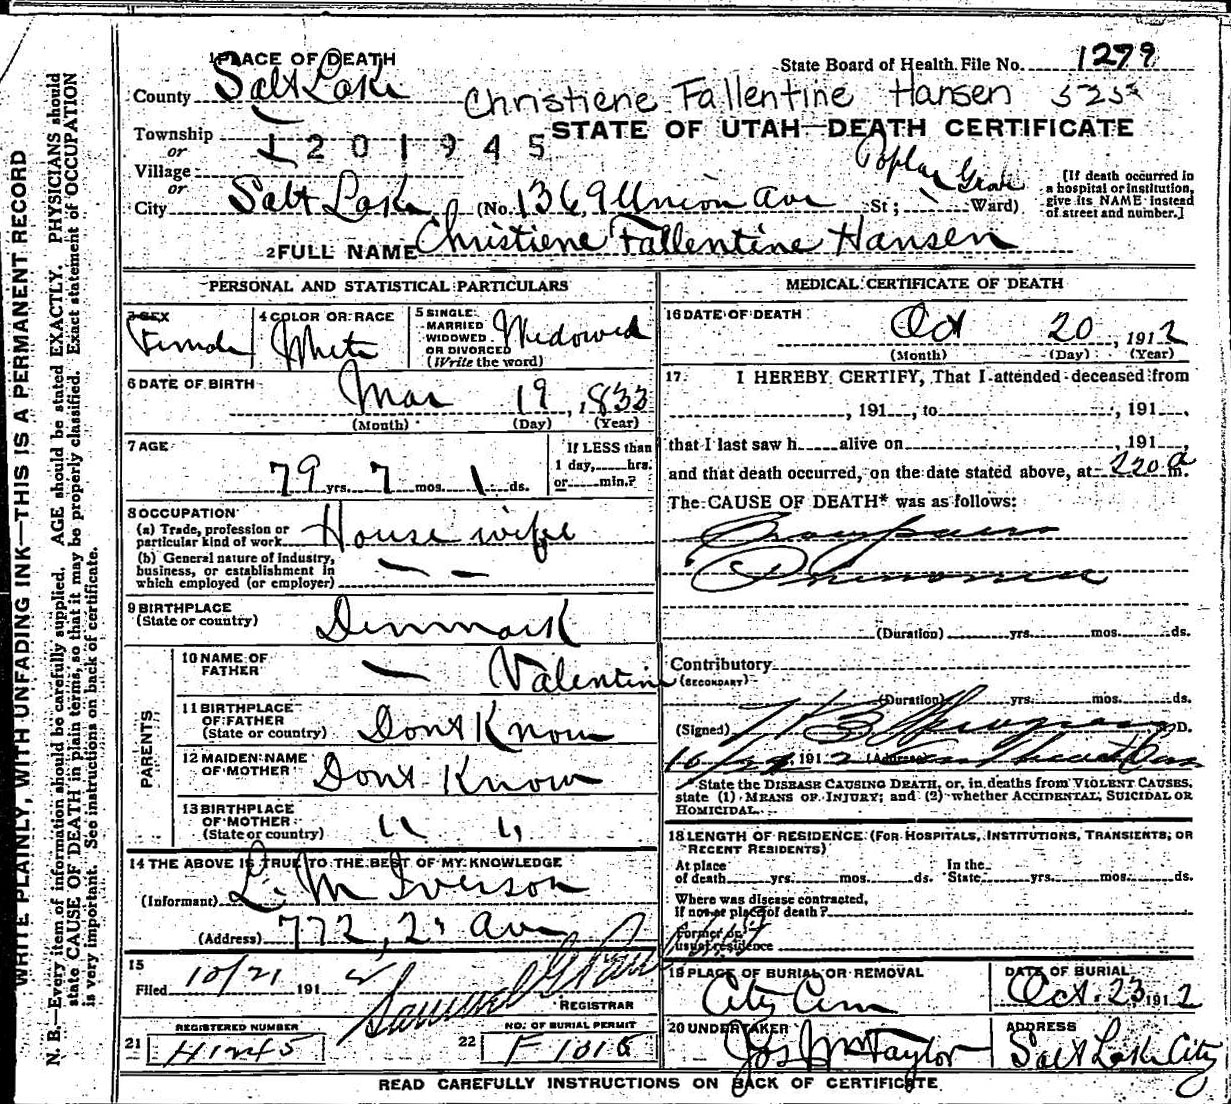 WRITE PLAINLY, WITH UNFADING INK—THIS IS A PERMANENT RECORD
N. B.—Every item of information should be carefully supplied. AGE should be stated EXACTLY. PHYSICIANS should
state CAUSE OF DEATH in plain terms, so that it may be properly classified. Exact statement of OCCUPATION
is very important. See instructions on back of certificate.
1 PLACE OF DEATH
State Board of Health File No. 1279
County Salt Lake
Christiene Fallentine Hansen
Township
or
1201945
STATE OF UTAH—DEATH CERTIFICATE
Village
or
Poplar Grove
City Salt Lake (No. 1369 Union Ave St; Ward)
[If death occurred in
a hospital or institution,
give its NAME instead
of street and number.]
2 FULL NAME Christiene Fallentine Hansen
PERSONAL AND STATISTICAL PARTICULARS
3 SEX
Female
4 COLOR OR RACE
White
5 SINGLE
MARRIED
WIDOWED
OR DIVORCED
(Write the word)
Widowed
6 DATE OF BIRTH
Mar 19, 1833
(Month) (Day) (Year)
7 AGE
79 yrs. 7 mos. 1 ds.
If LESS than
1 day, hrs.
or min.?
8 OCCUPATION
(a) Trade, profession or
particular kind of work House wife
(b) General nature of industry,
business, or establishment in
which employed (or employer) — —
9 BIRTHPLACE
(State or country) Denmark
PARENTS
10 NAME OF
FATHER — Valentine
11 BIRTHPLACE
OF FATHER
(State or country) Dont Know
12 MAIDEN NAME
OF MOTHER Dont Know
13 BIRTHPLACE
OF MOTHER
(State or country) " "
14 THE ABOVE IS TRUE TO THE BEST OF MY KNOWLEDGE
(Informant) L. M Iverson
(Address) 772, 2" Ave
15
Filed 10/21 191 2
Samuel G Paul
REGISTRAR
REGISTERED NUMBER
21 H1245
NO. OF BURIAL PERMIT
22 F 1016
MEDICAL CERTIFICATE OF DEATH
16 DATE OF DEATH
Oct 20, 1912
(Month) (Day) (Year)
17. I HEREBY CERTIFY, That I attended deceased from
, 191 , to , 191 ,
that I last saw h alive on , 191 ,
and that death occurred, on the date stated above, at 220 a m.
The CAUSE OF DEATH* was as follows:
Croupous
Pneumonia
(Duration) yrs. mos. ds.
Contributory
(SECONDARY)
(Duration) yrs. mos. ds.
(Signed) M. D.
191 2 (Address)
State the DISEASE CAUSING DEATH, or, in deaths from VIOLENT CAUSES,
state (1) MEANS OF INJURY; and (2) whether ACCIDENTAL, SUICIDAL OR
HOMICIDAL.
18 LENGTH OF RESIDENCE (FOR HOSPITALS, INSTITUTIONS, TRANSIENTS, OR
RECENT RESIDENTS)
At place
of death yrs. mos. ds.
In the
State yrs. mos. ds.
Where was disease contracted,
If not at place of death?
Former or
usual residence
19 PLACE OF BURIAL OR REMOVAL
City Cem
DATE OF BURIAL
Oct. 23, 1912
20 UNDERTAKER
Jos Wm Taylor
ADDRESS
Salt Lake City
READ CAREFULLY INSTRUCTIONS ON BACK OF CERTIFICATE